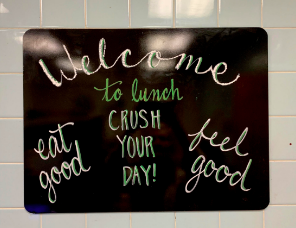 Welcome
to lunch
CRUSH
YOUR
DAY!
eat
good
feel
good